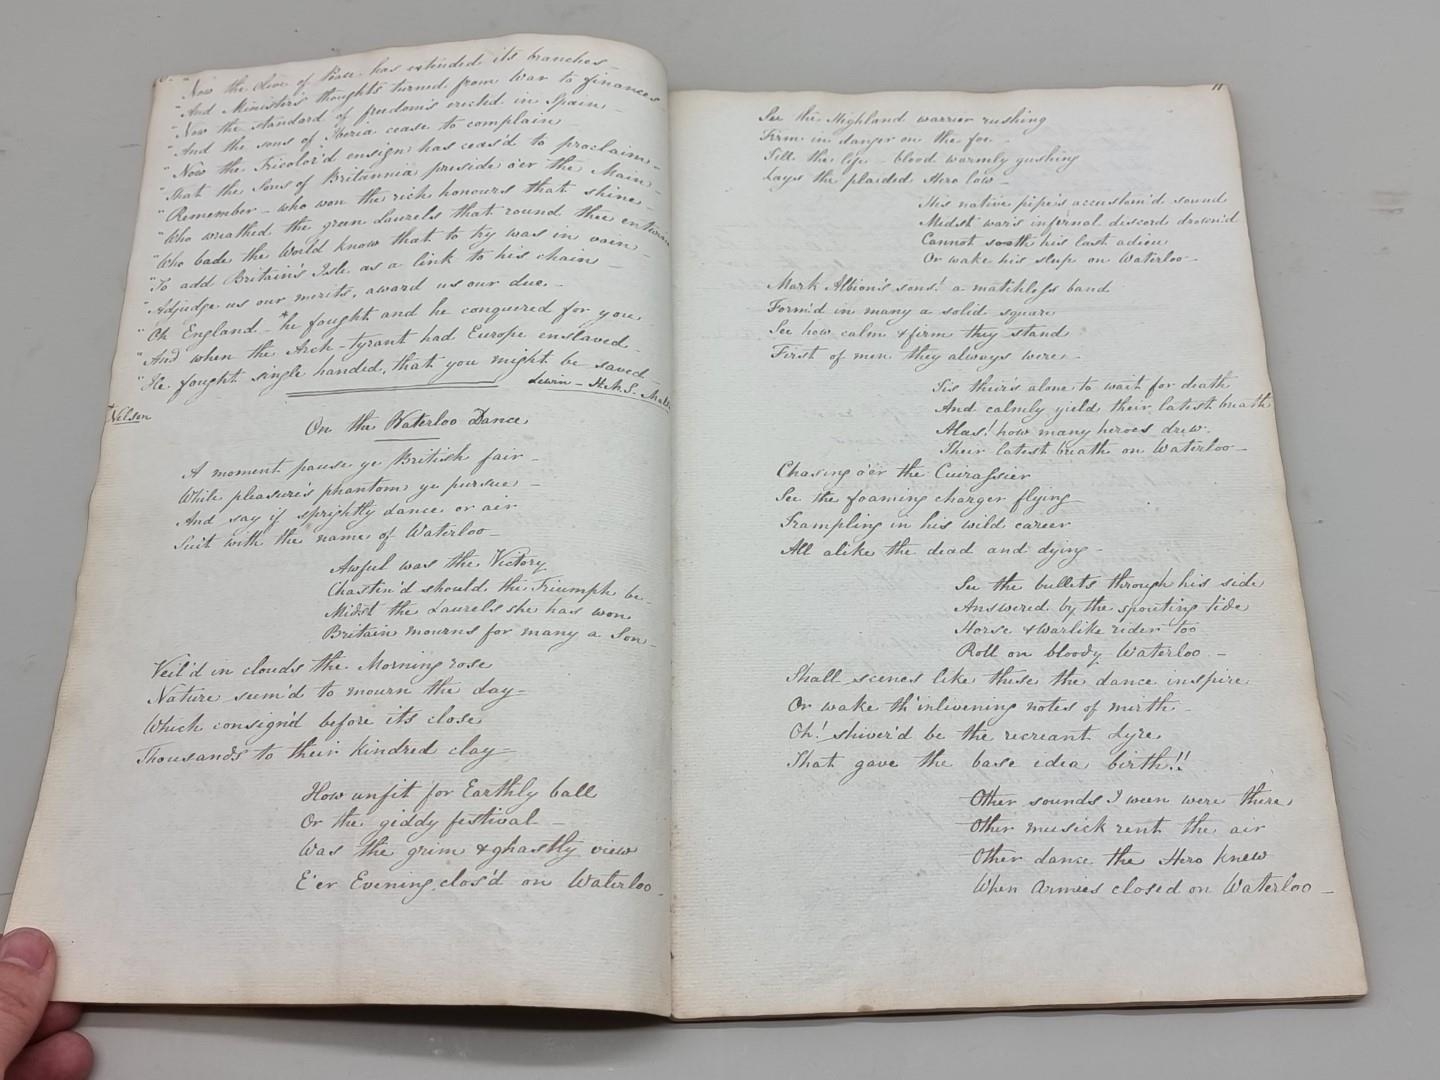 "Now the Olive of Peace has extended its branches_
"And Ministers thoughts turned from War to finances
"Now the standard of freedom's erected in Spain_
"And the sons of Iberia cease to complain_
"Now the Tricolor'd ensign has ceas'd to proclaim_
"That the Sons of Britannia preside o'er the Main_
"Remember_ who won the rich honours that shine_
"Who wreathed the green Laurels that round thee entwine
"Who bade the World know that to try was in vain_
"To add Britain's Isle as a link to his chain_
"Adjudge us our merits, award us our due_
"Oh England_ *he fought and he conquered for you_
"And when the Arch-Tyrant had Europe enslaved_
"He fought single handed, that you might be saved_
Lewin_ H.M.S.
Nelson
On the Waterloo Dance
A moment pause ye British fair_
While pleasure's phantom ye pursue_
And say if sprightly dance or air
Suit with the name of Waterloo_
Awful was the Victory
Chasten'd should the Triumph be_
Midst the Laurels she has won
Britain mourns for many a Son_
Veil'd in clouds the Morning rose
Nature seem'd to mourn the day_
Which consign'd before its close
Thousands to their kindred clay_
How unfit for Earthly ball
Or the giddy festival_
Was the grim & ghastly view
E'er Evening clos'd on Waterloo_
11
See the Highland warrior rushing
Firm in danger on the foe_
Till the life_blood warmly gushing
Lays the plaided Hero low_
His native pipe's accustom'd sound
Midst war's infernal discord drown'd
Cannot sooth his last adieu
Or wake his sleep on Waterloo_
Mark Albion's sons! a matchless band
Form'd in many a solid square
See how calm & firm they stand
First of men they always were_
Tis their's alone to wait for death
And calmly yield their latest breath
Alas! how many heroes drew
Their latest breath on Waterloo_
Chasing o'er the Cuirassier
See the foaming charger flying_
Trampling in his wild career
All alike the dead and dying_
See the bullets through his side
Answered by the spouting tide
Horse & warlike rider too
Roll on bloody Waterloo_
Shall scenes like these the dance inspire
Or wake th'inlivening notes of mirth_
Oh! shiver'd be the recreant Lyre
That gave the base idea birth!!
Other sounds I ween were there
Other musick rent the air
Other dance the Hero knew
When Armies closed on Waterloo_